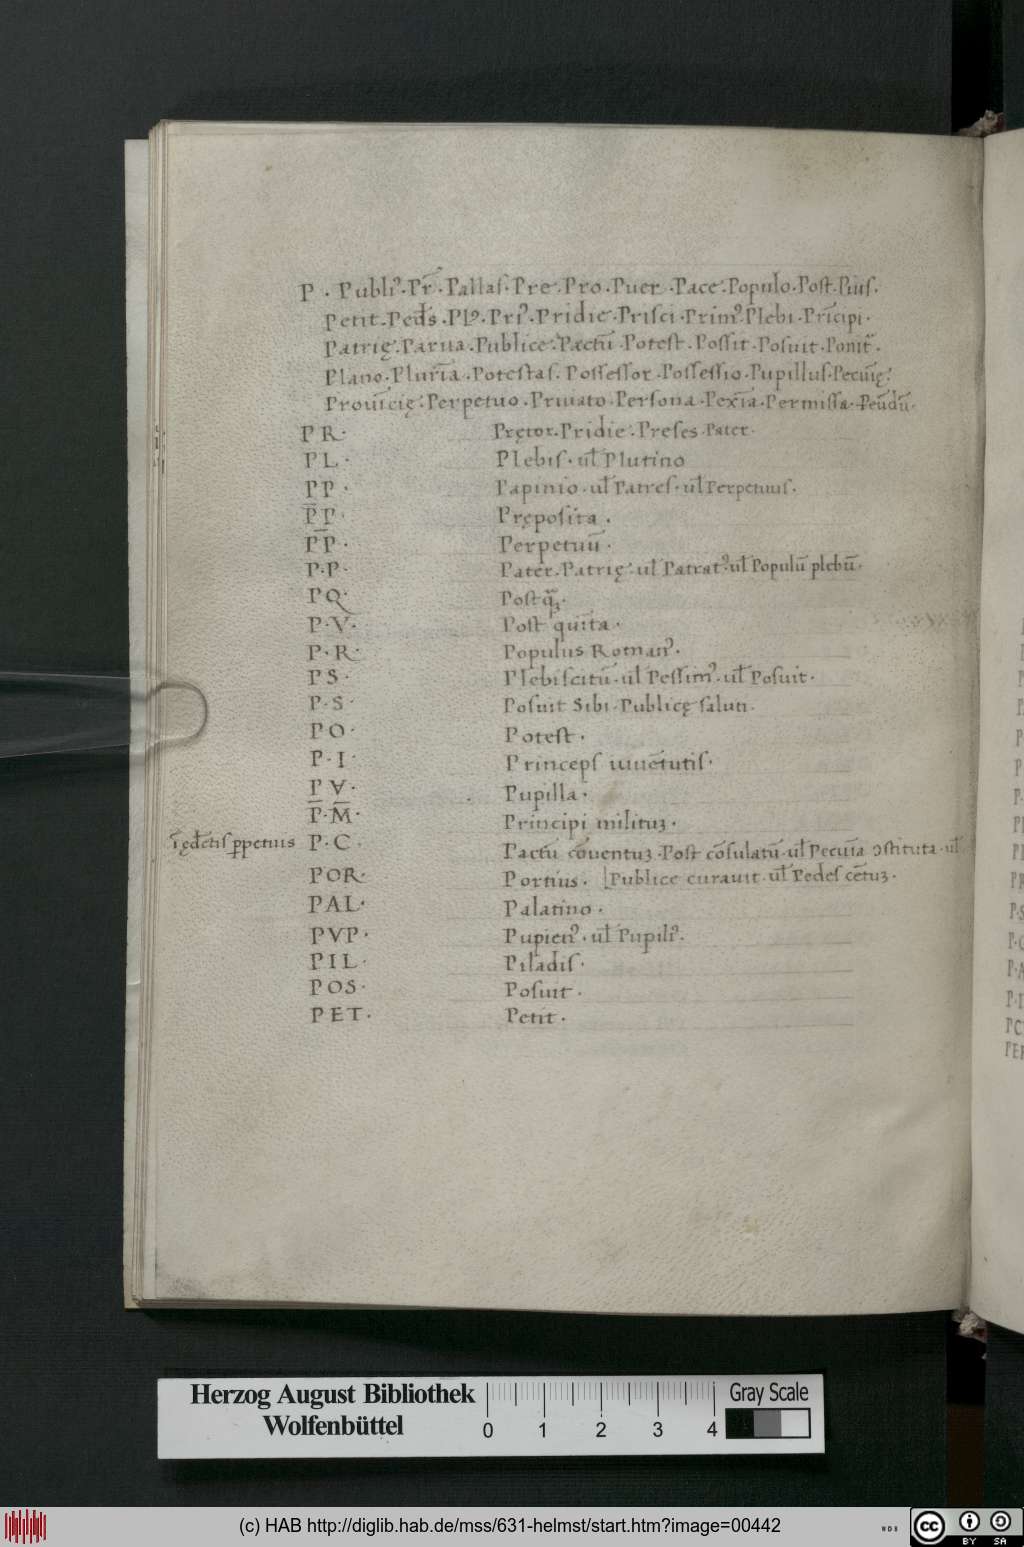 P · Publiꝰ · Pr̄ · Pallas · Pre · Pro · Puer · Pace · Populo · Post · Pius ·
Petit · Pl9 · Priꝰ · Pridie · Prisci · Primꝰ · P̄lebi · Prīcipi ·
Patrię · Parua · Publice · Pactū · Potest · Possit · Posuit · Ponit̄ ·
Plano · Plurīa · Potestas · Possessor · Possessio · Pupillus · Pecūię ·
Prouīcię · Perpetuo · Priuato · Persona · Pexīa · Permissa ·
P R · Prętor · Pridie · Preses · Pater ·
P L · Plebis · ul̄ Plutino
PP · Papinio · ul̄ Patres · ul̄ Perpetuus ·
P̄P · Pręposita ·
P̄P̄ · Perpetuū ·
P · P · Pater · Patrię · ul̄ Patratꝰ · ul̄ Populū plebū ·
PQ · Post q̄ꝫ ·
P · V · Post quīta ·
P · R · Populus Romanꝰ ·
PS · Plebiscitū · ul̄ Pessimꝰ · ul̄ Posuit ·
P · S · Posuit Sibi · Publicę saluti ·
PO · Potest ·
P · I · Princeps iuuētutis ·
P V · Pupilla ·
P̄ · M̄ · Principi milituꝫ ·
īcędētis ꝑpetuus P · C · Pactū cōuentuꝫ · Post cōsulatū · ul̄ Pecuīa ↄstituta · ul̄
POR · Portius · Publice curauit · ul̄ Pedes cētuꝫ ·
PAL · Palatino ·
PVP · Pupienꝰ · ul̄ Pupiliꝰ ·
PIL · Piladis ·
POS · Posuit ·
PET · Petit ·
Herzog August Bibliothek
Wolfenbüttel
0 1 2 3 4
Gray Scale
(c) HAB http://diglib.hab.de/mss/631-helmst/start.htm?image=00442
WDB
cc BY SA